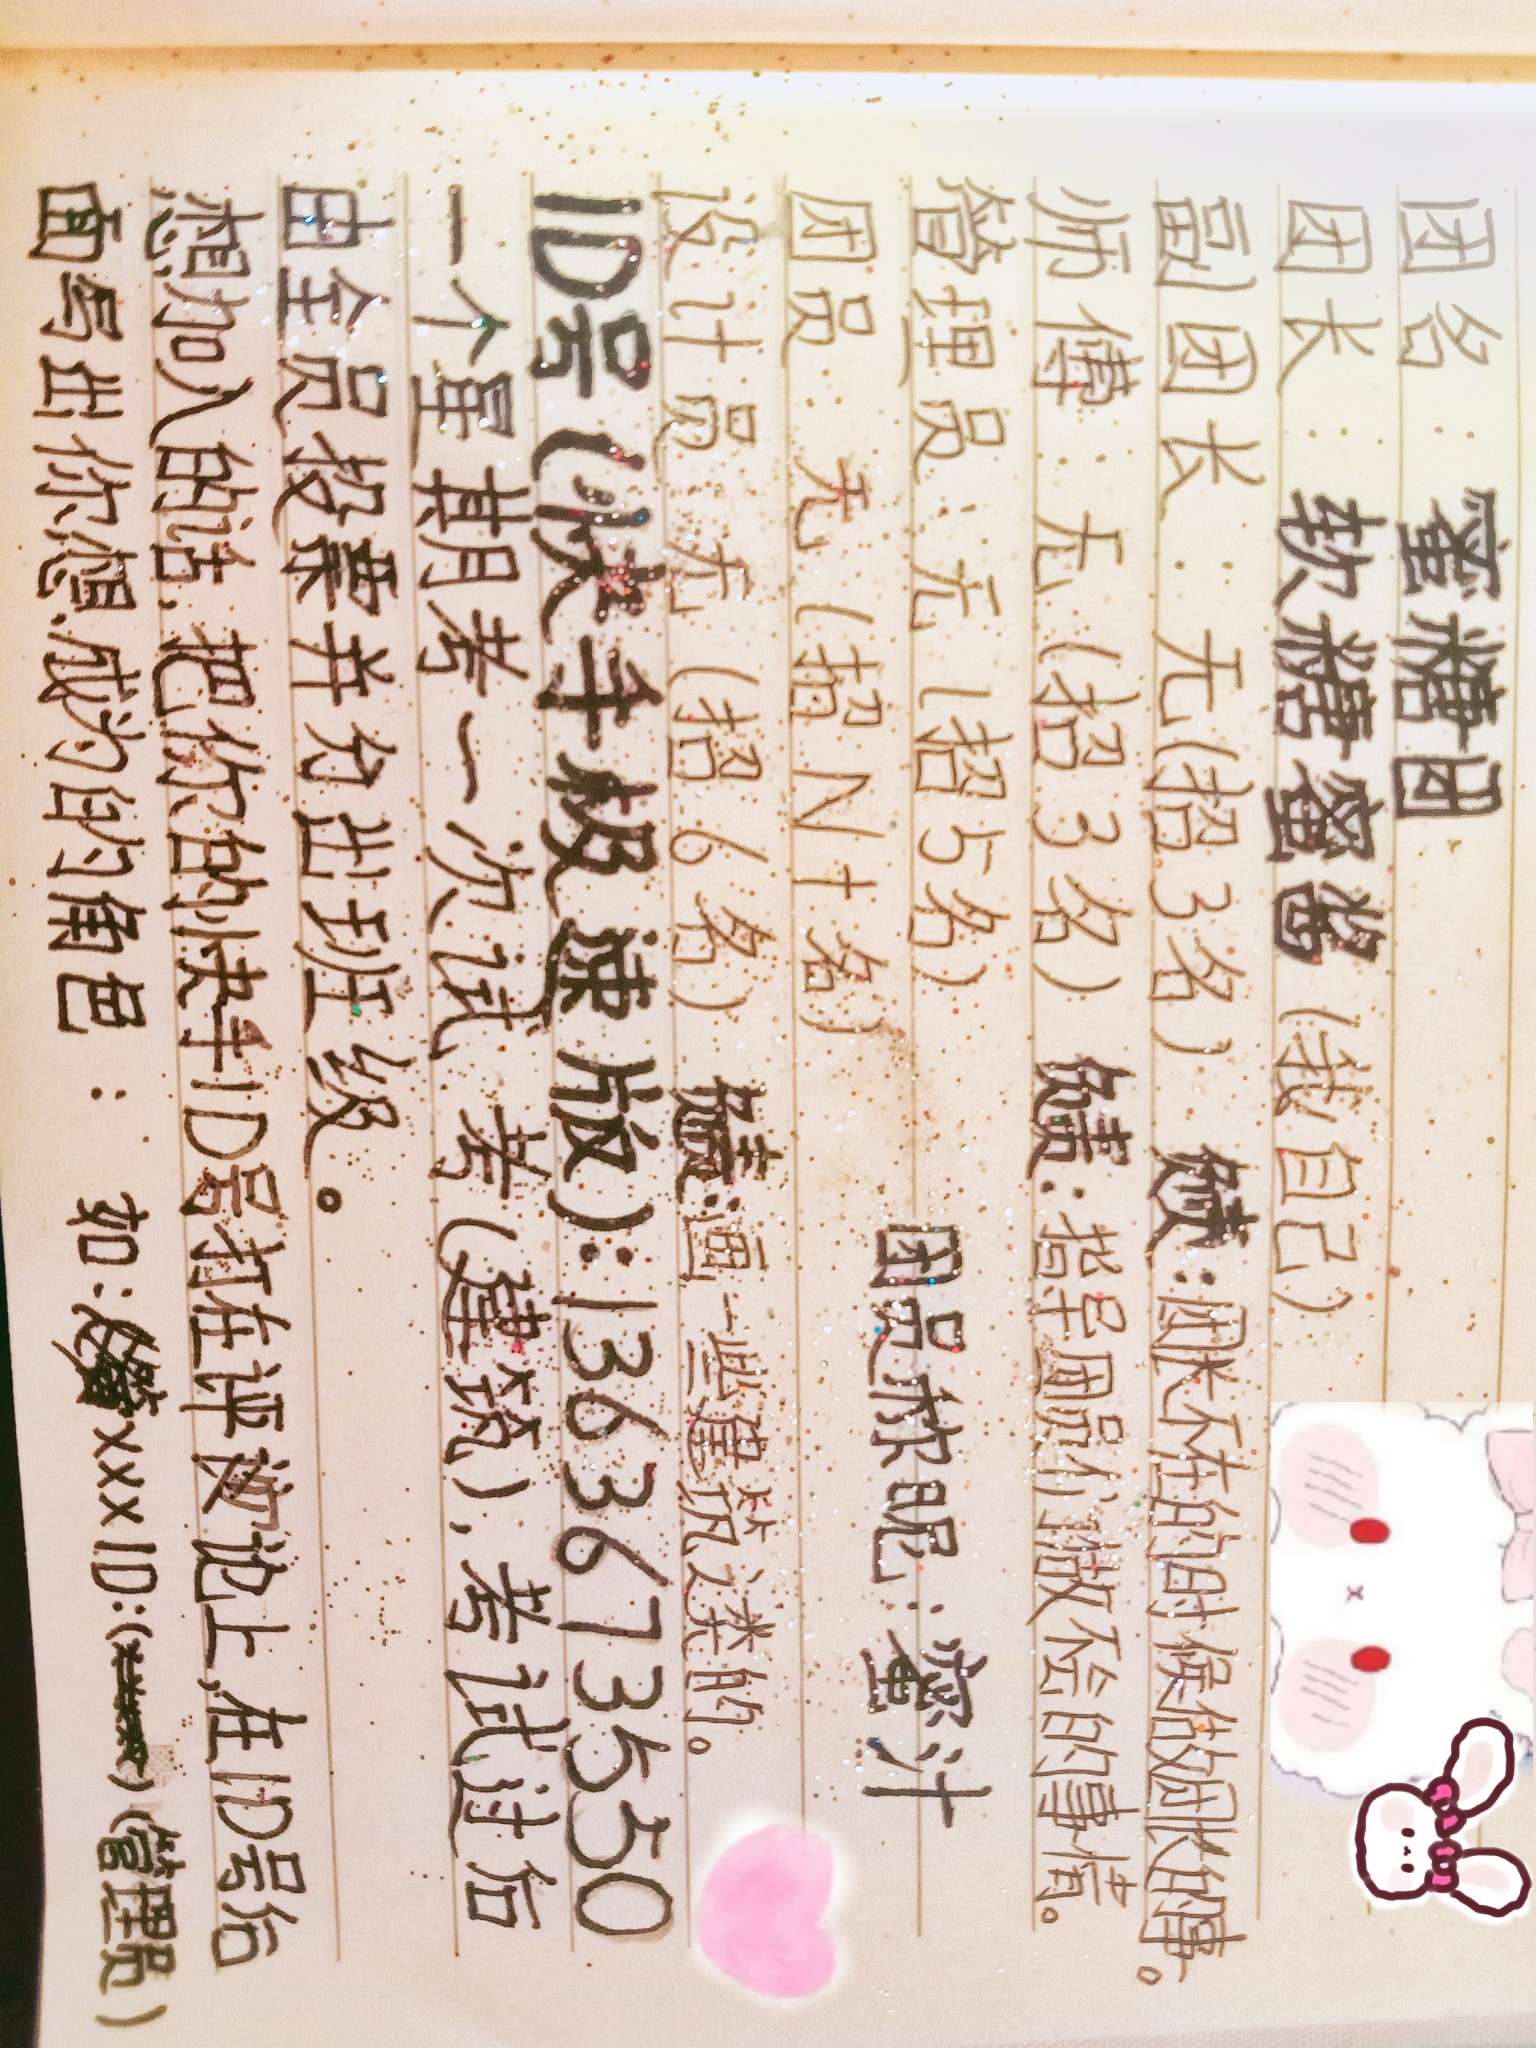 团名：蜜糖团
团长：软糖蜜酱（我自己）
副团长：无（招3名） 负责：团长不在的时候做团长的事。
师傅：无（招3名） 负责：指导团员们做不会的事情。
管理员 无（招5名）
团员 无（招N+名） 团员称昵：蜜汁
设计员 无（招6名） 负责：画一些建筑之类的。
ID号（快手极速版）：1363673550
一个星期考一次试 考（建筑），考试过后
由全员投票并分出班级。
想加入的话，把你的快手ID号打在评论池上，在ID号后
面号出你想成为的角色： 如：xxxID:（管理员）